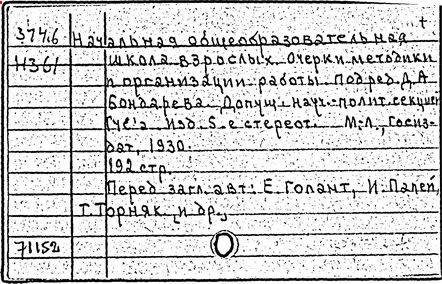 374.6 Начальная общеобразовательная
Н361 школа взрослых. Очерки методики
и организации работы. Под ред. Д.А.
Бондарева. Допущ. науч.-полит. секцией
ГУС'а. Изд. 5-е стереот. М.-Л., Госиз-
дат, 1930.
192 стр.
Перед загл. авт.: Е. Голант, И. Папей,
Т. Торняк [и др.]
71152